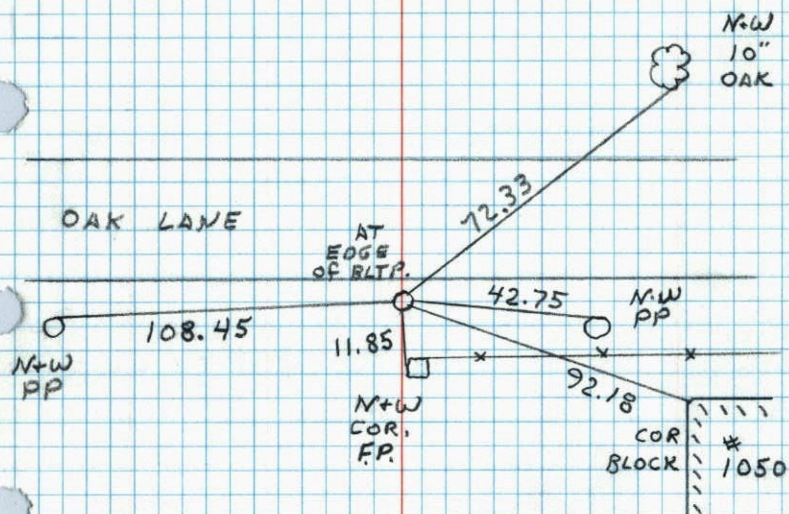 N+W
10"
OAK
72.33
OAK LANE
AT
EDGE
OF BLTP.
42.75
N+W
PP
108.45
11.85
N+W
PP
92.18
N+W
COR.
F.P.
COR
BLOCK
#
1050